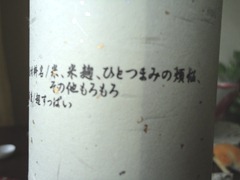 材料名/米、米麹、ひとつまみの煩悩、
その他もろもろ
味/超すっぱい